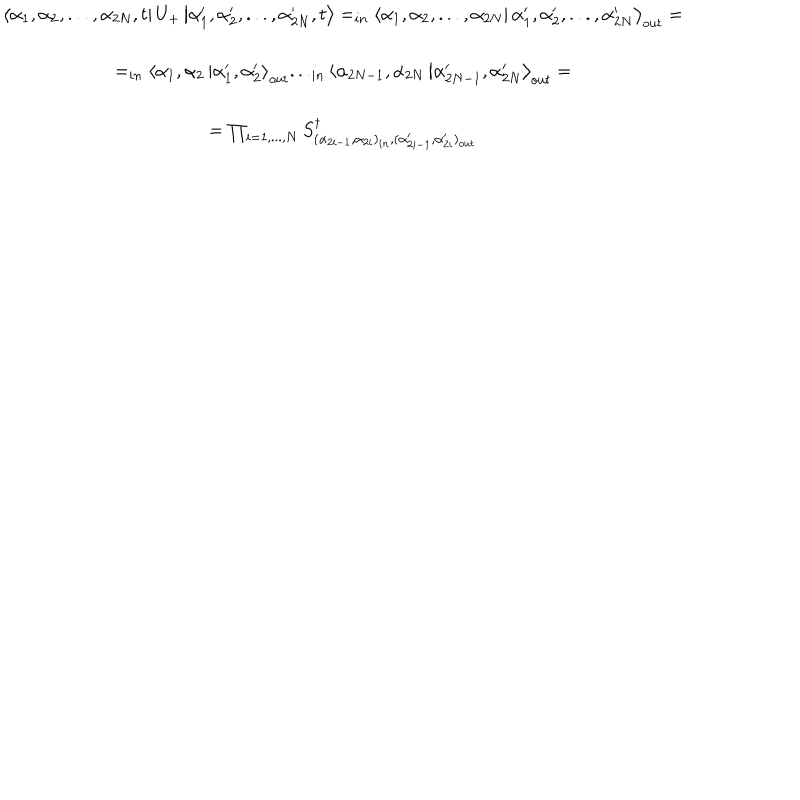 ⟨α₁, α₂, ..., α_{2N}, t| U₊ |α′₁, α′₂, ..., α′_{2N}, t⟩ =_{in} ⟨α₁, α₂, ..., α_{2N}| α′₁, α′₂, ..., α′_{2N}⟩_{out} =
=_{in} ⟨α₁, α₂ |α′₁, α′₂⟩_{out} ..._{in} ⟨α_{2N−1}, α_{2N} |α′_{2N−1}, α′_{2N}⟩_{out} =
= ∏_{i=1,...,N} S†_{(α_{2i−1},α_{2i})_{in},(α′_{2i−1},α′_{2i})_{out}}